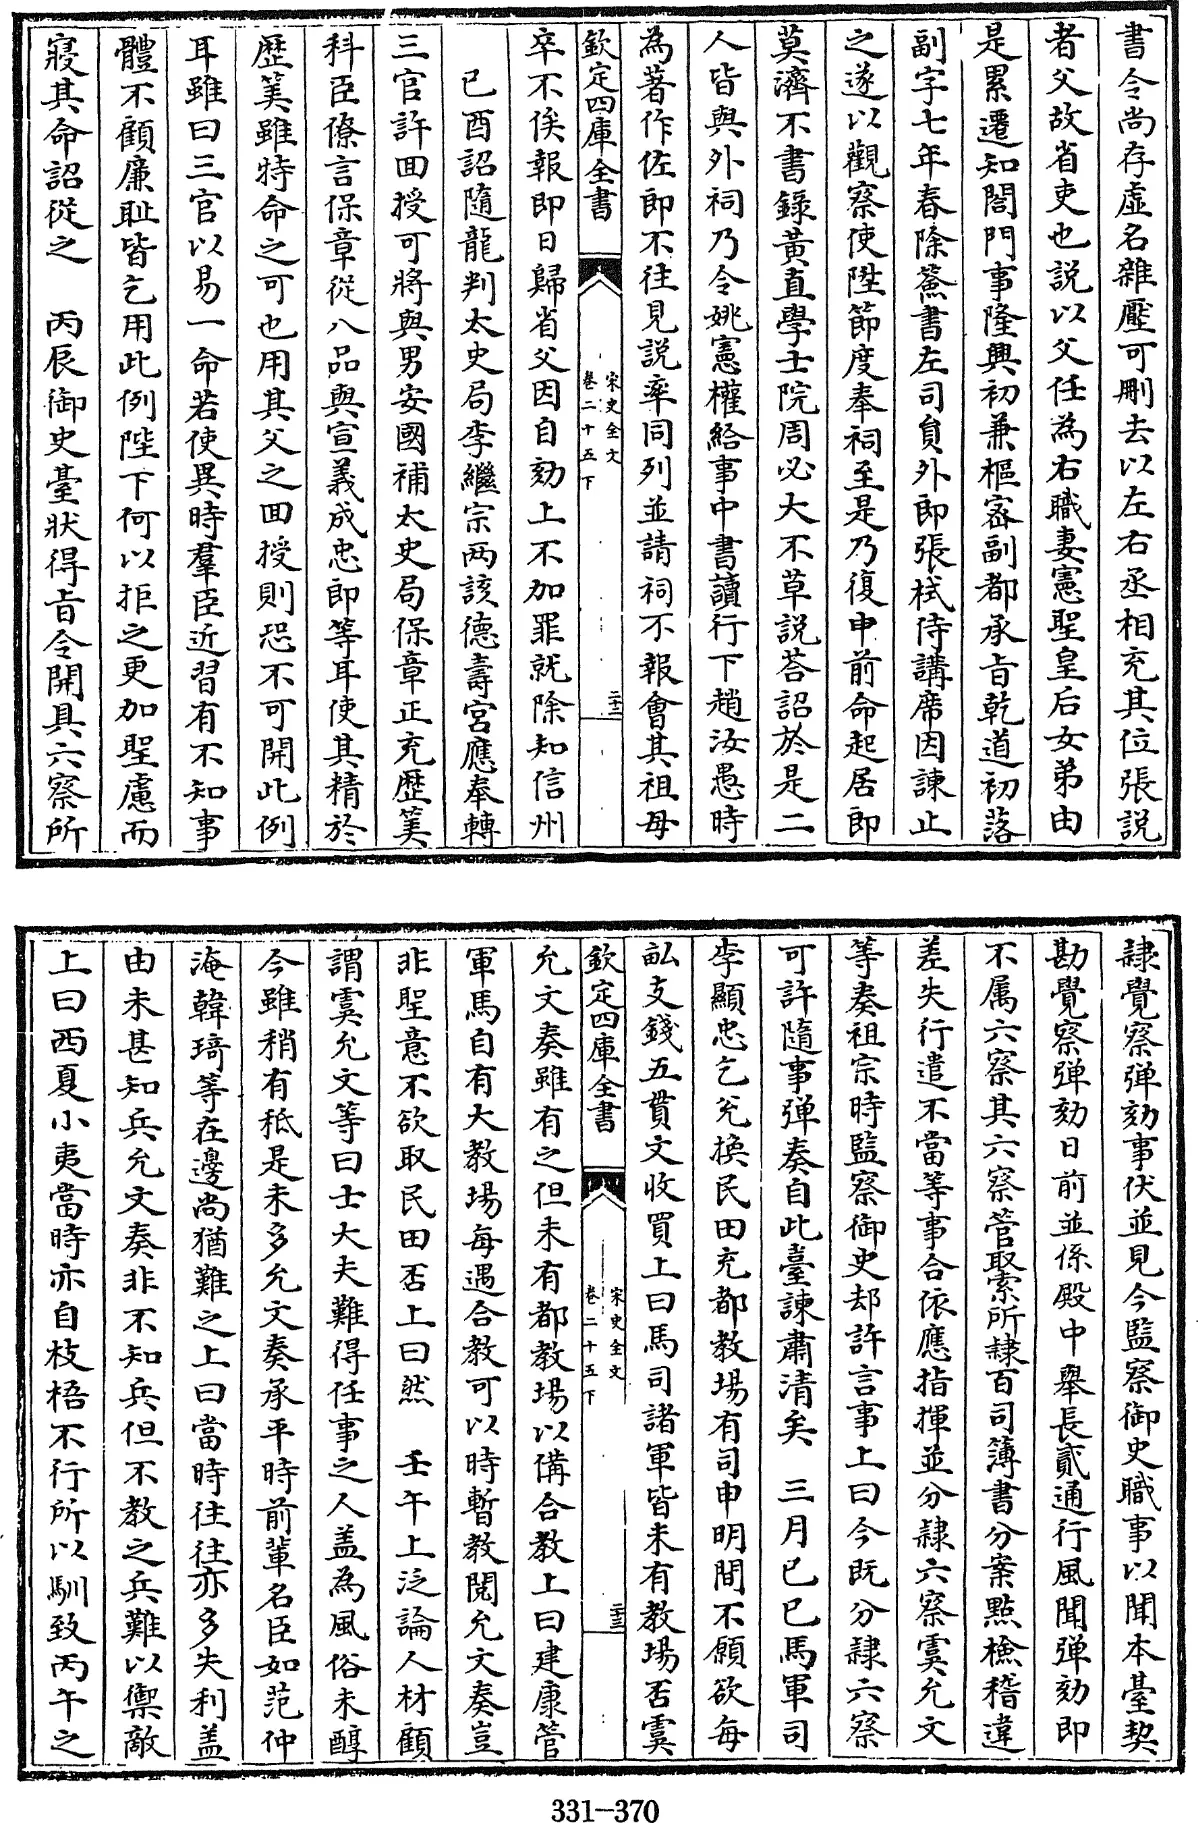 書令尚存虛名雜壓可刪去以左右丞相充其位張說
者父故省吏也說以父任為右職妻憲聖皇后女弟由
是累遷知閤門事隆興初兼樞宻副都承旨乾道初落
副字七年春除簽書左司員外郎張栻侍講席因諫止
之遂以觀察使陞節度奉祠至是乃復申前命起居郎
莫濟不書錄黃直學士院周必大不草說荅詔於是二
人皆與外祠乃令姚憲權給事中書讀行下趙汝愚時
為著作佐郎不往見說率同列並請祠不報會其祖母
欽定四庫全書
宋史全文
卷二十五下
二十二
卒不俟報即日歸省父因自劾上不加罪就除知信州
已酉詔隨龍判太史局李繼宗两該德壽宮應奉轉
三官許回授可將與男安國補太史局保章正充歷筭
科臣僚言保章從八品與宣義成忠郎等耳使其精於
歷筭雖特命之可也用其父之回授則恐不可開此例
耳雖曰三官以易一命若使異時羣臣近習有不知事
體不顧廉耻皆乞用此例陛下何以拒之更加聖慮而
寢其命詔從之　丙辰御史臺狀得旨令開具六察所
隸覺察弹劾事伏並見今監察御史職事以聞本臺契
勘覺察弹劾日前並係殿中舉長貳通行風聞弹劾即
不属六察其六察管取索所隸百司簿書分案㸃檢稽違
差失行遣不當等事合依應指揮並分隸六察虞允文
等奏祖宗時監察御史却許言事上曰今既分隸六察
可許隨事弹奏自此臺諫肅清矣　三月已巳馬軍司
李顯忠乞兊換民田充都教場有司申明間不願欲每
畆支錢五貫文收買上曰馬司諸軍皆未有教場否虞
欽定四庫全書
宋史全文
卷二十五下
二十三
允文奏雖有之但未有都教場以備合教上曰建康管
軍馬自有大教場每遇合教可以時暫教閱允文奏豈
非聖意不欲取民田否上曰然　壬午上泛論人材顧
謂虞允文等曰士大夫難得任事之人盖為風俗未醇
今雖稍有秪是未多允文奏承平時前輩名臣如范仲
淹韓琦等在邊尚猶難之上曰當時往往亦多失利盖
由未甚知兵允文奏非不知兵但不教之兵難以禦敵
上曰西夏小夷當時亦自枝梧不行所以馴致丙午之
331-370